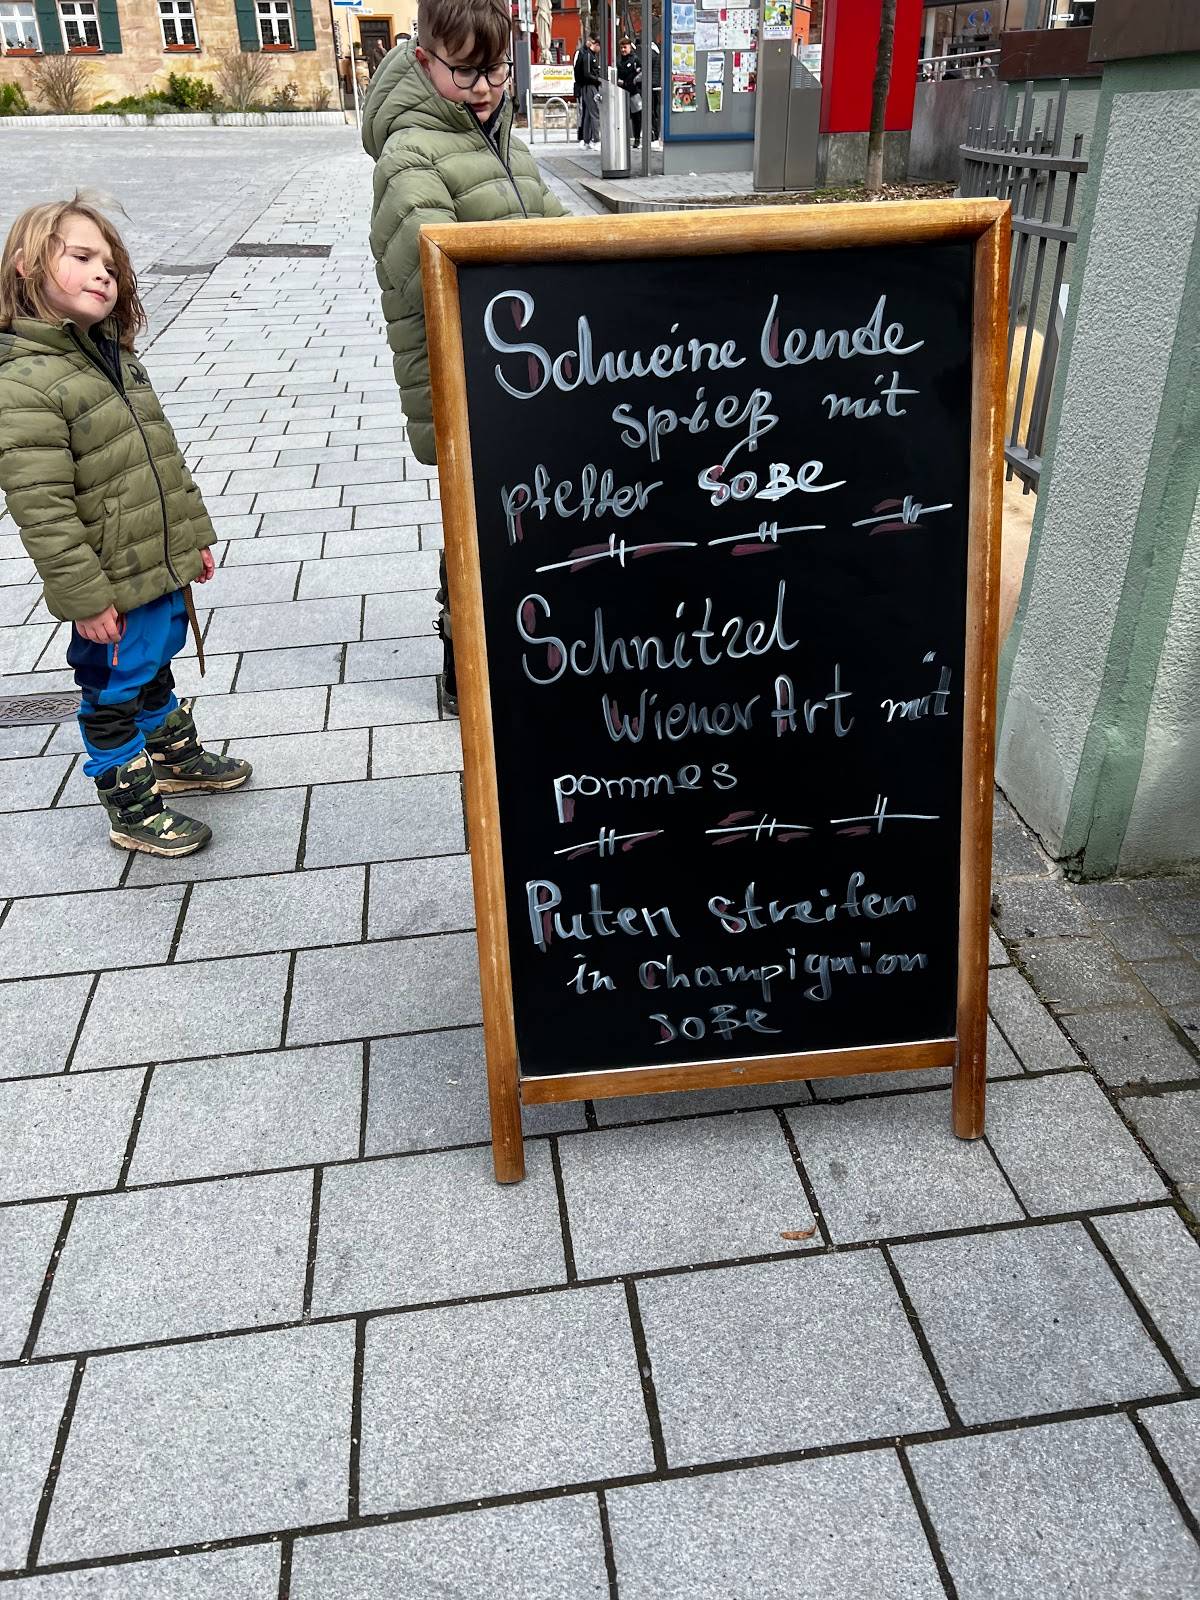 Schweine lende
spieß mit
pfeffer soße
Schnitzel
Wiener Art mit
pommes
Puten streifen
in Champignion
soße